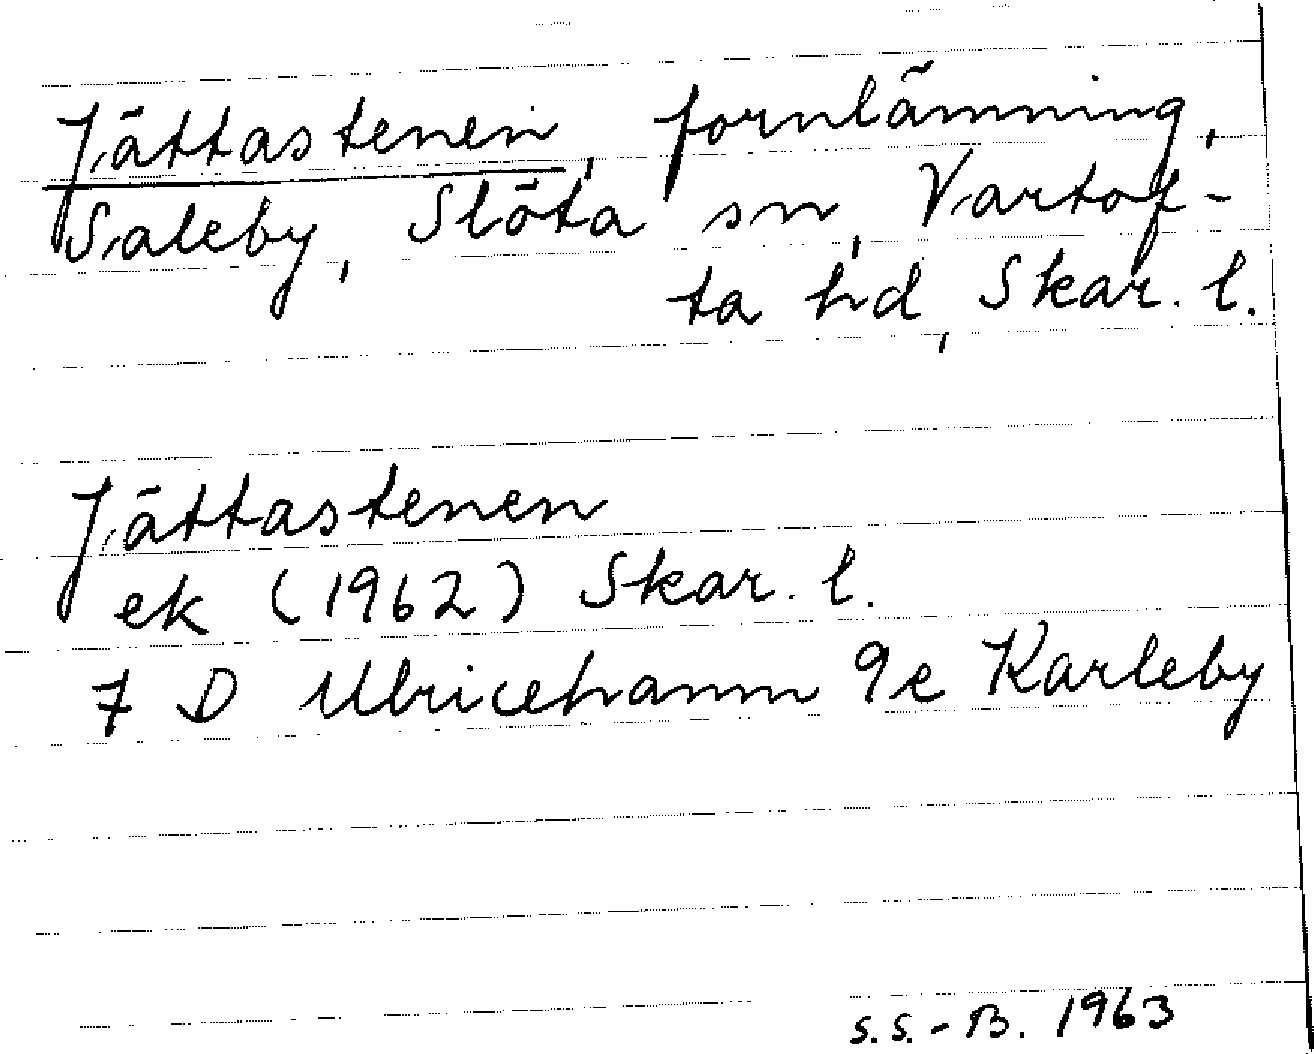 Jättastenen, fornlämning,
Saleby, Slöta sn, Vartof-
ta hd, Skar. l.
Jättastenen
ek (1962) Skar. l.
7 D Ulricehamn 9e Karleby
S.S.-B. 1963